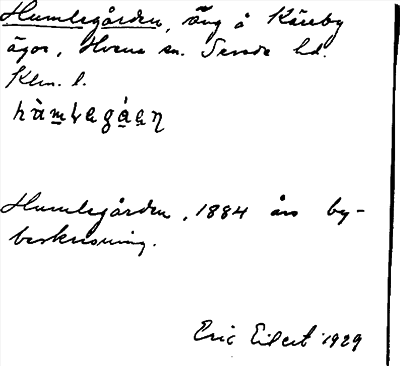 Humlegården, äng å Käreby
ägor, Hvena sn. Sevede hd.
Klm. l.
hàmlegá̱a̱n
Humlegården, 1884 års by-
beskrivning.
Eric Eilert 1929